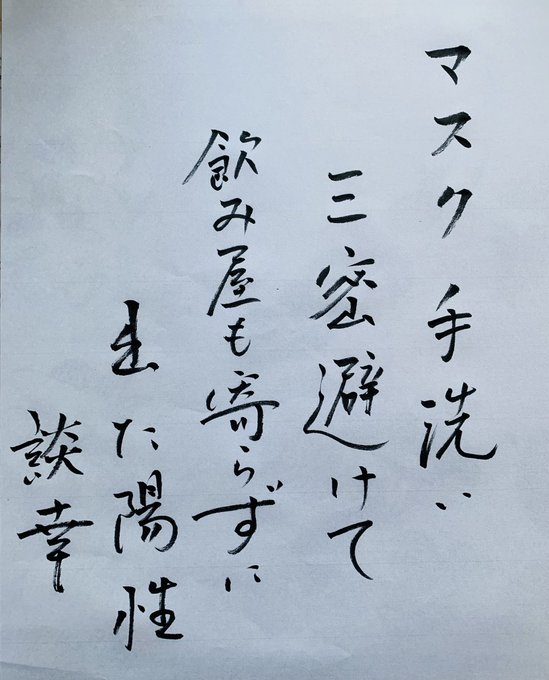 マスク 手洗い
三密避けて
飲み屋も寄らずに
出た陽性
談幸